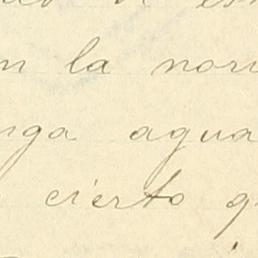 n la nori
nga agua
cierto q